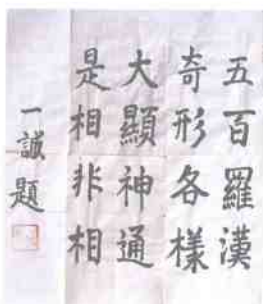 五百羅漢
奇形各樣
大顯神通
是相非相
一誠題